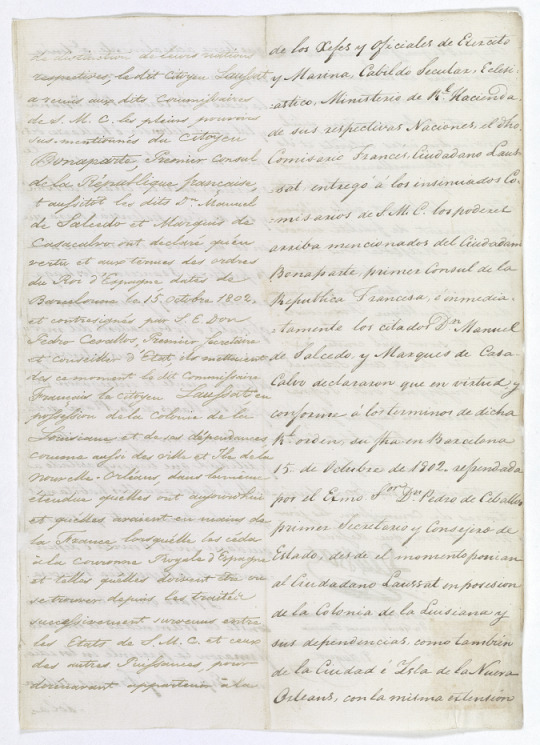 de leurs nations
respectives, le dit Citoyen Laussat
a remis aux dits Commissaires
de S. M. C. les pleins pouvoirs
sus-mentionnés du Citoyen
Bonaparte, Premier Consul
de la République française,
et aussitôt les dits Dn. Manuel
de Salcedo et Marquis de
Casacalvo ont déclaré qu'en
vertu et aux termes des ordres
du Roi d'Espagne datés de
Barcelonne le 15 Octobre 1802.
et contresignés par S. E. Don
Pedro Cevallos, Premier Secrétaire
et conseiller d'Etat ils mettaient
dès ce moment le dit Commissaire
Français le citoyen Laussat en
possession de la colonie de la
Louisiane et de ses dépendances
comme aussi des ville et Isle de la
Nouvelle-Orléans, dans la même
étendue qu'elles ont aujourd'hui
et qu'elles avaient en mains de
la France lorsqu'elle les céda
à la couronne Royale d'Espagne
et telles qu'elles doivent être ou
se trouver depuis les traités
successivement survenus entre
les Etats de S. M. C. et ceux
des autres Puissances, pour
dorénavant appartenir à la
de los Xefes y Oficiales de Exército
y Marina, Cabildo Secular, Eclesi-
astico, Ministerio de Rl. Hacienda
de sus respectivas Naciones, el dho
Comisario Frances, Ciudadano Laus-
sat entregó á los insinuados Co-
misarios de S. M. C. los poderes
arriba mencionados del Ciudadano
Bonaparte, primer Consul de la
Republica Francesa, é inmedia-
tamente los citados Dn. Manuel
de Salcedo, y Marques de Casa-
Calvo declararon que en virtud y
conforme á los terminos de dicha
Rl. orden, su fha en Barcelona
15 de Octubre de 1802. refrendada
por el Exmo Sor. Dn. Pedro de Ceballos
primer Secretario y Consejero de
Estado, desde el momento ponian
al Ciudadano Laussat en posesion
de la Colonia de la Luisiana y
sus dependencias, como tambien
de la Ciudad é Isla de la Nueva
Orleans, con la misma extension